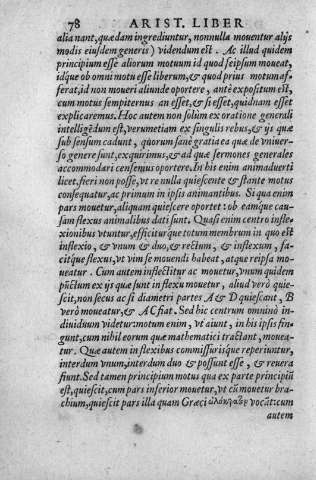 78 ARIST. LIBER
alia nant, quædam ingrediuntur, nonnulla mouentur alijs
modis eiusdem generis) videndum est. Ac illud quidem
principium esse aliorum motuum id quod seipsum moueat,
idq́ue ab omni motu esse liberum, & quod prius motum af-
ferat, id non moueri aliunde oportere, antè expositum est,
cum motus sempiternus an esset, & si esset, quidnam esset
explicaremus. Hoc autem non solùm ex oratione generali
intelligẽdum est, verumetiam ex singulis rebus, & ijs quæ
sub sensum cadunt, quorum sanè gratia ea quæ de vniuer-
so genere sunt, exquirimus, & ad quæ sermones generales
accommodari censemus oportere. In his enim animaduerti
licet, fieri non posse, vt re nulla quiescente & stante motus
consequatur, ac primum in ipsis animantibus. Si qua enim
pars mouetur, aliquam quiescere oportet: ob eamque cau-
sam flexus animalibus dati sunt. Quasi enim centro infle-
xionibus vtuntur, efficiturque totum membrum in quo est
inflexio, & vnum & duo, & rectum, & inflexum, fa-
citque flexus, vt vim se mouendi habeat, atque reipsa mo-
ueatur. Cum autem inflectitur ac mouetur, vnum quidem
pũctum ex ijs quæ sunt in flexu mouetur, aliud verò quie-
scit, non secus ac si diametri partes A & D quiescant, B
verò moueatur, & AC fiat. Sed hic centrum omninò in-
diuiduum videtur: motum enim, vt aiunt, in his ipsis fin-
gunt, cum nihil eorum quæ mathematici tractant, mouea-
tur. Quæ autem in flexibus commissurisque reperiuntur,
interdum vnum, interdum duo & possunt esse, & reuera
fiunt. Sed tamen principium motus qua ex parte principiũ
est, quiescit, cum pars inferior mouetur, vt cũ mouetur bra-
chium, quiescit pars illa quam Græci ὠλέκρανον vocãt: cum
autem